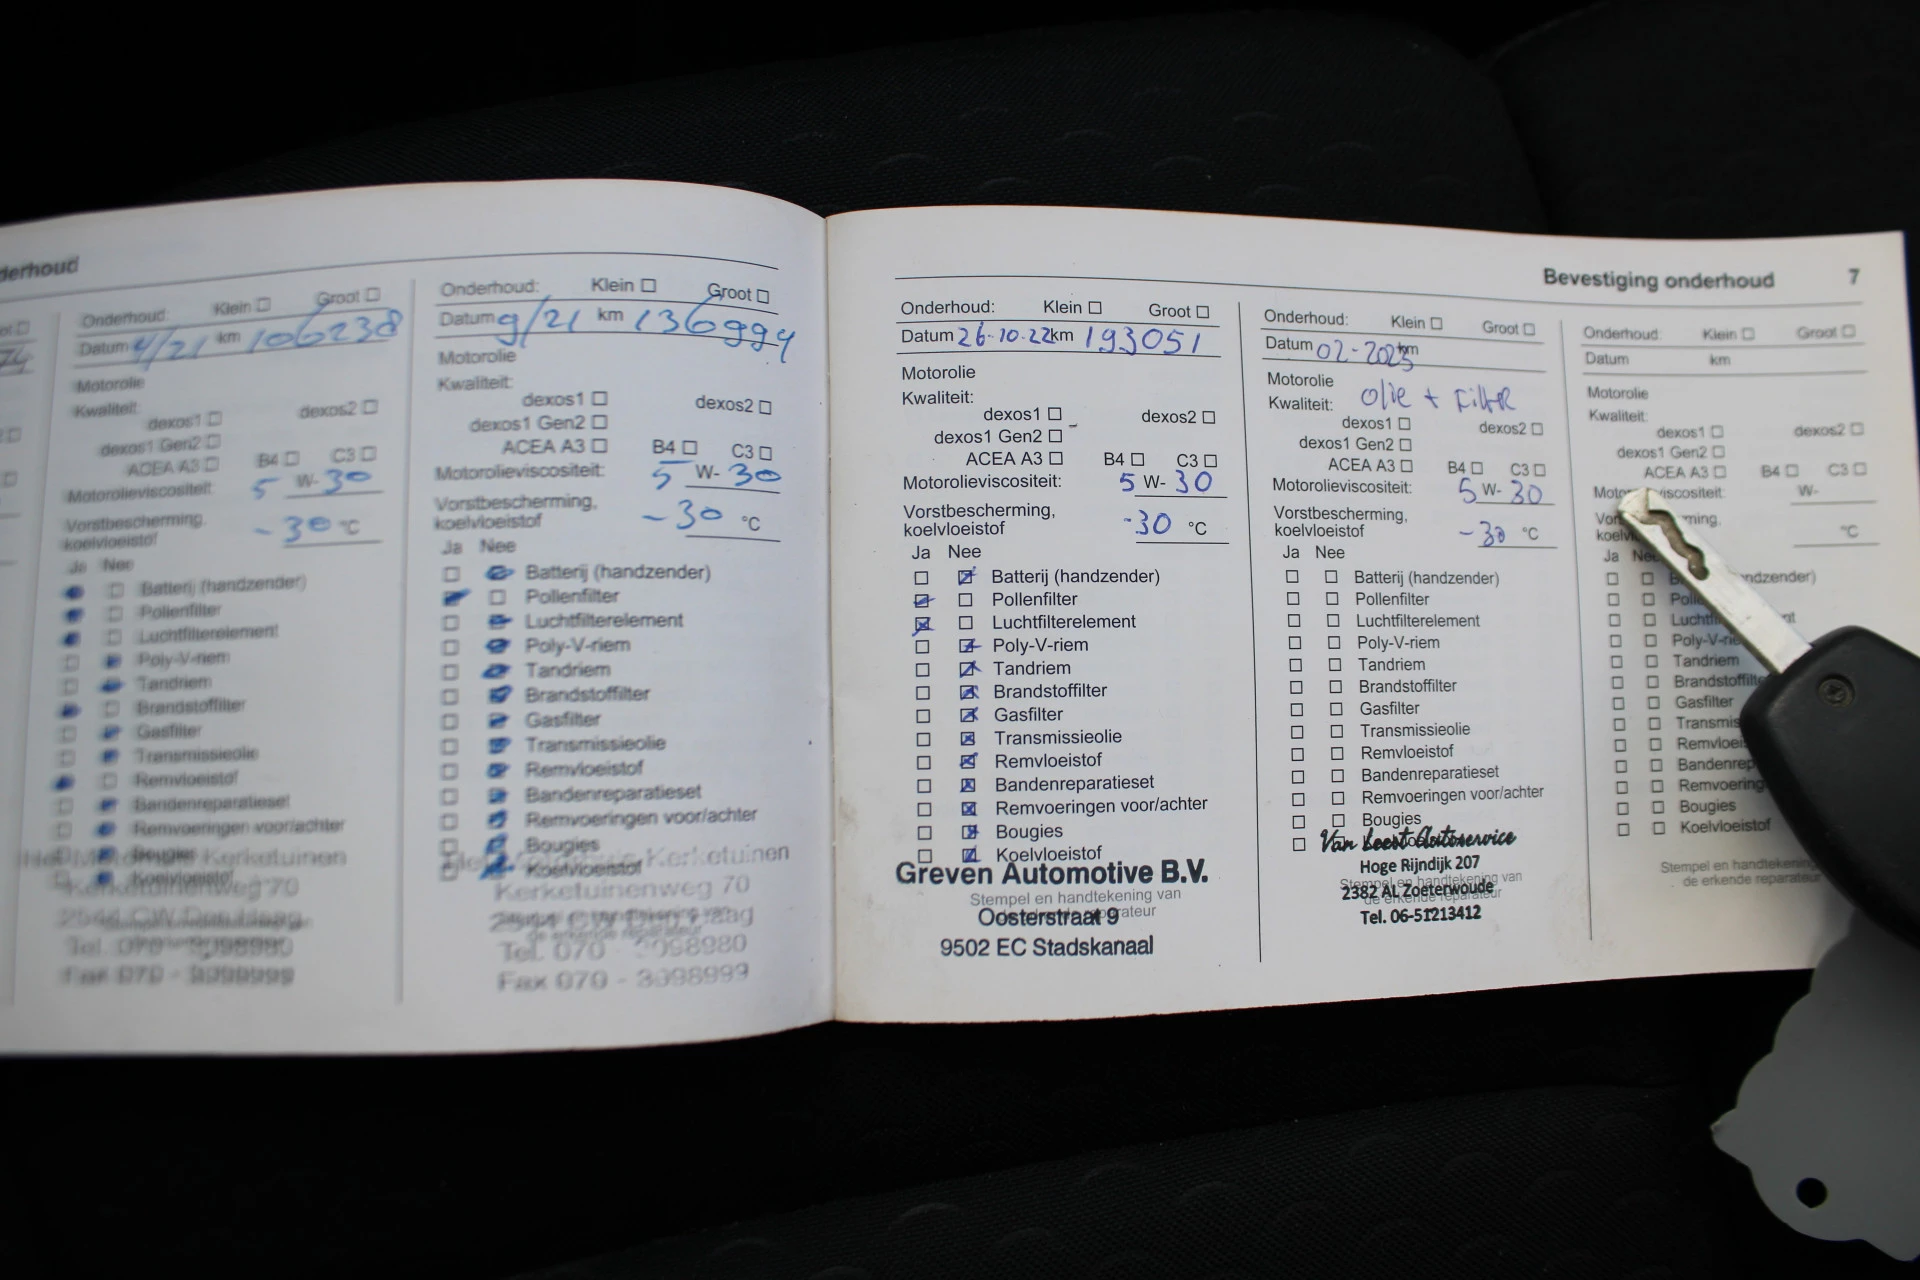 derhoud
74
Onderhoud: Klein Groot
Datum 4/21 km 106238
Motorolie
Kwaliteit:
dexos1 dexos2
dexos1 Gen2
ACEA A3 B4 C3
Motorolieviscositeit: 5 W- 30
Vorstbescherming,
koelvloeistof -30 °C
Ja Nee
Batterij (handzender)
Pollenfilter
Luchtfilterelement
Poly-V-riem
Tandriem
Brandstoffilter
Gasfilter
Transmissieolie
Remvloeistof
Bandenreparatieset
Remvoeringen voor/achter
Bougies
Kerketuinen
Koelvloeistof
Kerketuinenweg 70
2544 CW Den Haag
Tel. 070
Fax 070 -
Onderhoud: Klein Groot
Datum 9/21 km 136994
Motorolie
Kwaliteit:
dexos1 dexos2
dexos1 Gen2
ACEA A3 B4 C3
Motorolieviscositeit: 5 W- 30
Vorstbescherming,
koelvloeistof -30 °C
Ja Nee
Batterij (handzender)
Pollenfilter
Luchtfilterelement
Poly-V-riem
Tandriem
Brandstoffilter
Gasfilter
Transmissieolie
Remvloeistof
Bandenreparatieset
Remvoeringen voor/achter
Bougies
Kerketuinen
Koelvloeistof
Kerketuinenweg 70
Tel. 070 - 3098980
Fax 070 - 3098999
Bevestiging onderhoud 7
Onderhoud: Klein Groot
Datum 26-10-22 km 193051
Motorolie
Kwaliteit:
dexos1 dexos2
dexos1 Gen2
ACEA A3 B4 C3
Motorolieviscositeit: 5 W- 30
Vorstbescherming,
koelvloeistof -30 °C
Ja Nee
Batterij (handzender)
Pollenfilter
Luchtfilterelement
Poly-V-riem
Tandriem
Brandstoffilter
Gasfilter
Transmissieolie
Remvloeistof
Bandenreparatieset
Remvoeringen voor/achter
Bougies
Koelvloeistof
Greven Automotive B.V.
Stempel en handtekening van
Oosterstraat 9
9502 EC Stadskanaal
Onderhoud: Klein Groot
Datum 02-2025 km
Motorolie
Kwaliteit: olie + Filter
dexos1 dexos2
dexos1 Gen2
ACEA A3 B4 C3
Motorolieviscositeit: 5 W- 30
Vorstbescherming,
koelvloeistof -30 °C
Ja Nee
Batterij (handzender)
Pollenfilter
Luchtfilterelement
Poly-V-riem
Tandriem
Brandstoffilter
Gasfilter
Transmissieolie
Remvloeistof
Bandenreparatieset
Remvoeringen voor/achter
Bougies
Van Leest Autoservice
Hoge Rijndijk 207
Stempel en handtekening van
2382 AL Zoeterwoude
Tel. 06-51213412
Onderhoud: Klein Groot
Datum km
Motorolie
Kwaliteit:
dexos1 dexos2
dexos1 Gen2
ACEA A3 B4 C3
viscositeit: W-
ming,
°C
Ja
ndzender)
Poly-V-rie
Tandriem
Brandstoffilte
Gasfilter
Transmis
Remvloei
Bandenrep
Remvoering
Bougies
Koelvloeistof
Stempel en handtekening
de erkende reparateur